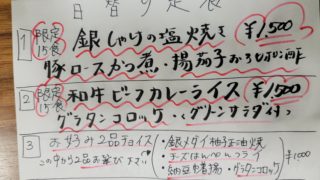 日替り定食
1 限定15食 銀しゃりの塩焼き ¥1,500
豚ロースかつ煮・揚茄子おろしポン酢
2 限定15食 和牛ビーフカレーライス ¥1,500
グラタンコロッケ・グリーンサラダ付
3 お好み2品チョイス
この中から2品お選び下さい
・銀メダイ柚子正油焼
・チーズはんぺんフライ
・納豆巾着揚・グラタンコロッケ
¥1,000